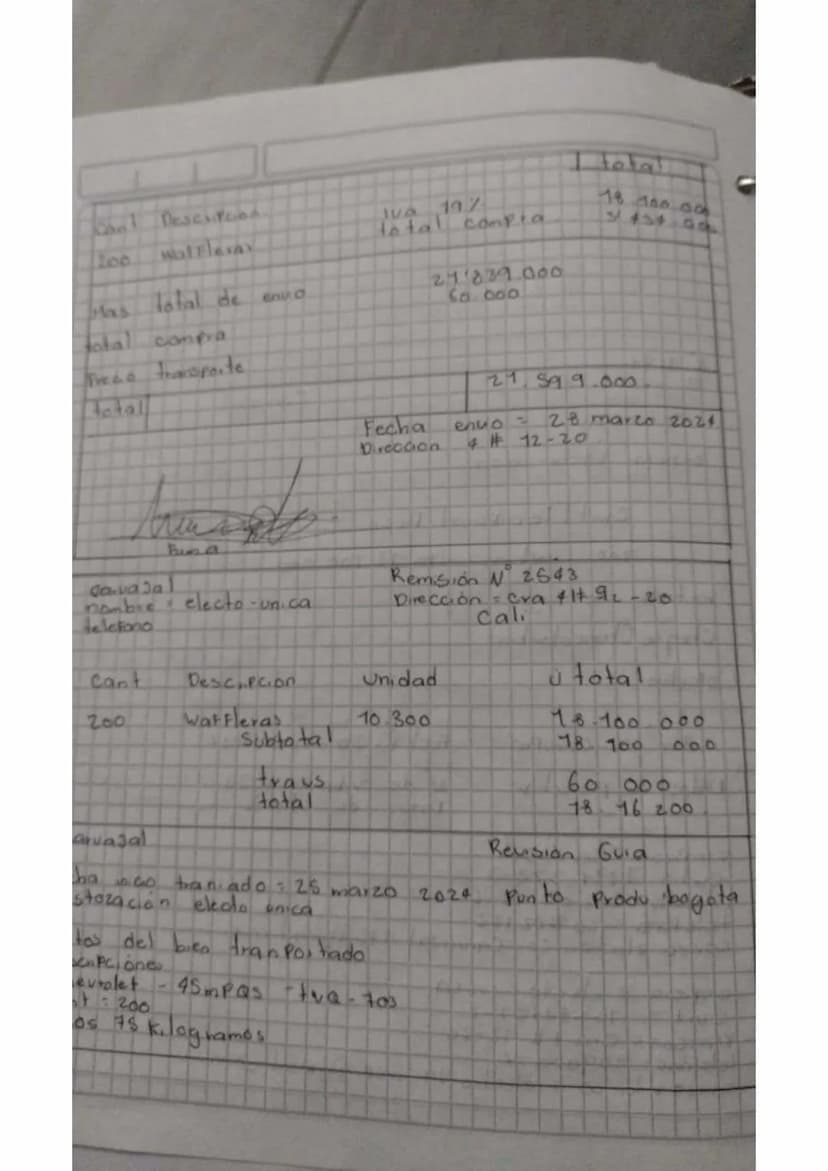 total
Cant Descripcion
Iva 19%
18.100.000
200 waffleras
total compra
Mas total de envo
21'839.000
60.000
total compra
transporte
total
21.599.000
Fecha envio = 28 marzo 2024
Direccion 4 # 12-20
Firma
carvajal
Remisión N° 2543
nombre : electo-unica
Dirección = cra 4 # 92 - 20
telefono
Cali
Cant Descripcion Unidad u total
200 waffleras 10.300 18.100.000
Subtotal 18 100 000
trans 60.000
total 18 16 200
arvajal
Revisión Guia
tran ado = 25 marzo 2024 Punto Produ bogota
electo unica
tos del bien tranportado
pciones
evrolet - 45mpas - tva-703
t = 200
os 75 kilogramos